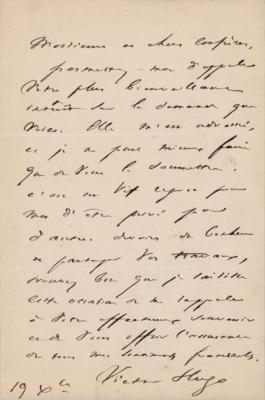 Messieurs et chers confrères,
permettez-moi d'appeler
votre plus bienveillante
sur la demande que
voici. Elle m'est adressée,
et je ne puis mieux faire
que de vous la soumettre.
c'est un vif regret pour
moi d'être privé par
d'autres devoirs de l'honneur
de partager vos travaux,
trouvez bon que je saisisse
cette occasion de me rappeler
à votre affectueux souvenir
et de vous offrir l'assurance
de tous mes sentiments fraternels.
Victor Hugo
19 Xbre